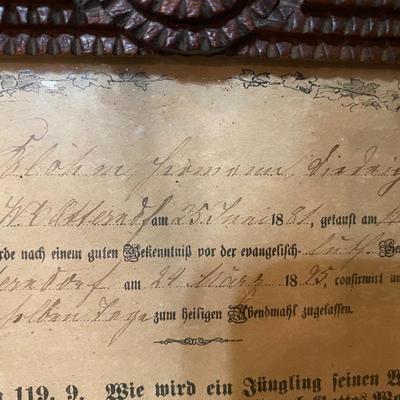 Klöhn Hermann Diedrich
W. Otterndf am 25 Juni 1881, getauft am
rde nach einem guten Bekenntniß vor der evangelisch- luth. Ge
terndorf am 24 März 1895, confirmirt un
selben Tage zum heiligen Abendmahl zugelassen.
119, 9. Wie wird ein Jüngling seinen W